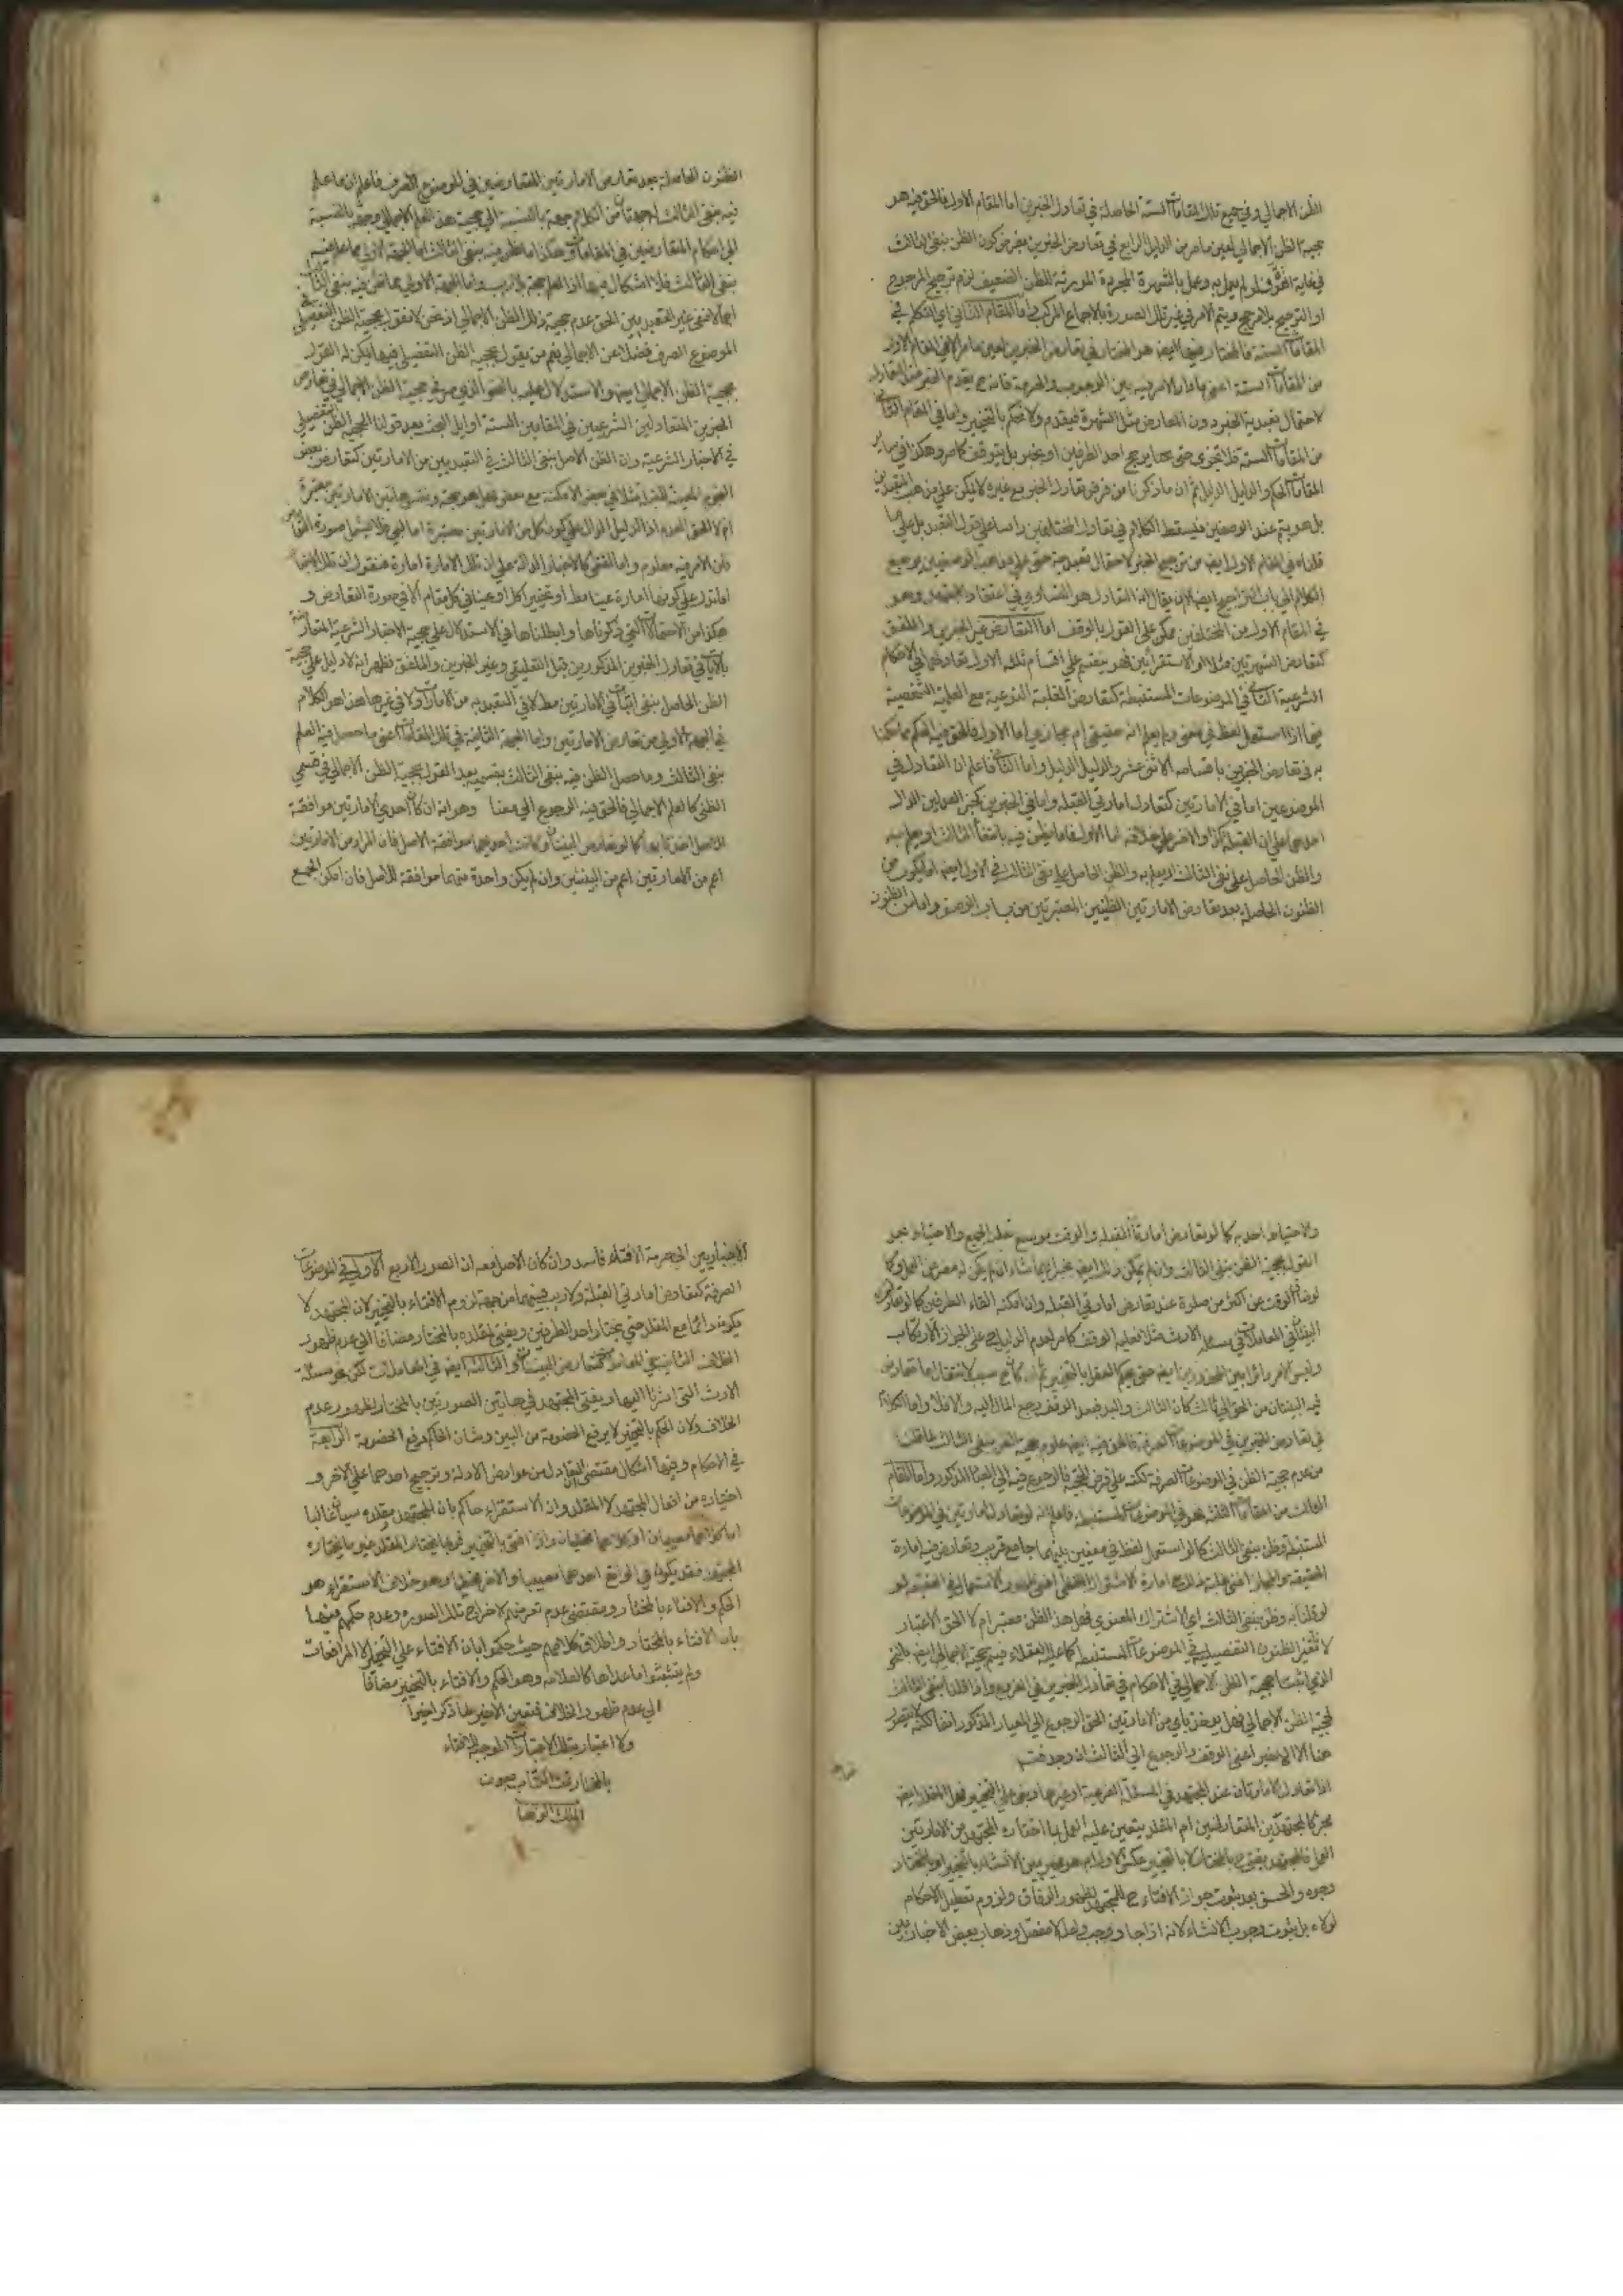 الظن الاجمالي وفي جميع تلك المقامات الستة الحاصلة في تعادل الخبرين اما المقام الاول فالحق فيه هو
حجية الظن الاجمالي لعين ما مر من الدليل الرابع في تعارض الخبرين بفرض كون الظن بنفي الثالث
في غاية القوة فلو لم يعمل به وعمل بالشهرة المجردة المورثة للظن الضعيف لزم ترجيح المرجوح
او الترجيح بلا مرجح ويتم الامر في غير تلك الصورة بالاجماع المركب واما المقام الثاني اي التكلم في
المقامات الستة فالمختار فيها ايضا هو المختار في تعارض الخبرين لعين ما مر الا في المقام الاول
من المقامات الستة اعني ما دار الامر فيه بين الوجوب والحرمة فانه ح يقدم الخبر
لاحتمال تعبدية الخبر دون المعارض مثل الشهرة فيقدم ولا نحكم بالتخيير واما في المقام الثاني
من المقامات الستة فلا تجزى حتى يرجح احد الطرفين او يخير بل يتوقف كما مر وهكذا في ساير
المقامات الحكم والدليل الدليل ثم ان ما ذكرنا من فرض تعادل الخبر مع غيره لا يمكن على مذهب
بل هو يتم عند الوصفيين فيسقط الكلام في تعادل المختلفين راسا على قول التعبد بل على ما
قلناه في المقام الاول ايضا من ترجيح الخبر لاحتمال تعبديته حتى على مذهب الوصفيين يرجع
الكلام الى باب التراجيح ايضا الا ان يقال ان التعادل هو التساوي في اعتقاد المجتهد وهو
في المقام الاول من المختلفين ممكن على القول بالوقف اما التعارض غير الخبرين والملفق
كتعارض الشهرتين مثلا او الاستقرائين فهو ينقسم على اقسام ثلثة الاول تعادلهما في الاحكام
الشرعية الثاني في الموضوعات المستنبطة كتعارض الغلبة النوعية مع الغلبة الشخصية
فيما اذا استعمل لفظ في معنى ولم يعلم انه حقيقي ام مجازي اما الاول فالحق فيه الحكم بما حكمنا
به في تعارض الخبرين باقسامه الاثني عشر والدليل الدليل واما الثاني فاعلم ان التعادل في
الموضوعين اما في الامارتين كتعادل امارتي القبلة واما في الخبرين كخبر العدلين الدال
احدهما على ان القبلة كذا والاخر على خلافه اما الاول فاما يظن فيه بانتفاء الثالث او يعلم به
والظن الحاصل على نفي الثالث او يعلم به والظن الحاصل على نفي الثالث في الاول ايضا اما يكون من
الظنون الحاصلة بعد تعارض الامارتين الظنيين المعتبرتين من باب الوصف واما من الظنون
الظنون الحاصلة بعد تعارض الامارتين المتعارضين في الموضوع الصرف فاعلم ان ما علم
فيه بنفي الثالث من الكلام جهة بالنسبة الى حجية هذا العلم الاجمالي وجهة بالنسبة
الى احكام المتعارضين في المقامات وهكذا ما ظن فيه بنفي الثالث اما الجهة الاولى مما علم فيه
بنفي الثالث فلا اشكال فيها اذ العلم حجة بلا ريب واما الجهة الاولى مما ظن فيه بنفي الثالث
اعني غير التعبديين الحق عدم حجية ذلك الظن الاجمالي اذ نحن لا نقول بحجية الظن التفصيلي في
الموضوع الصرف فضلا عن الاجمالي نعم من يقول بحجية الظن التفصيلي فيها يمكن له القول
بحجية الظن الاجمالي ايضا والاستدلال عليه بالنحو الذي مر في حجية الظن الاجمالي في تعارض
الخبرين المتعادلين الشرعيين في المقامين الستة اوايل البحث بعد قولنا بحجية الظن التفصيلي
في الاخبار الشرعية وان الظن الاصل بنفي الثالث في التعبديين من الامارتين كتعارض بعض
النجوم المعينة للقبلة مثلا في بعض الامكنة مع بعض فهل هو حجة
ام لا الحق العدم اذ الدليل الدال على كون كل من الامارتين معتبرة اما لبي فلا يشمل صورة التعارض
لان الامر فيه معلوم واما لفظي كالاخبار الدالة على ان تلك الامارة امارة فنقول ان تلك الاخبار
اما تدل على كونها امارة عينا مط او تخييرا كل او عينا في كل مقام الا في صورة التعارض و
هكذا من الاحتمالات التي ذكرناها وابطلناها في الاستدلال على حجية الاخبار الشرعية المتعارضة
بالايات في تعادل الخبرين المذكورين قبل التعليق وغير الخبرين والملفق فظهر انه لا دليل على حجية
الظن الحاصل بنفي الثالث في الامارتين مط لا في التعبدية من الامارات ولا في غيرها هذا هو الكلام
في الجهة الاولى من تعارض الامارتين واما الجهة الثانية في تلك المقامات اعني ما حصل فيه العلم
بنفي الثالث وما حصل الظن فيه بنفي الثالث بقسميه بعد القول بحجية الظن الاجمالي في قسمي
الظني كالعلم الاجمالي فالحق فيه الرجوع الى وهو انه ان كان احدى الامارتين موافقة
للاصل اخذنا بها كما لو تعارض البينتان وكانت احديهما موافقة الاصل فان المراد من الامارتين
اعم من الامارتين اعم من البينتين وان لم يكن واحدة منهما موافقة للاصل فان امكن الجمع
والاحتياط اخذ به كما لو تعارض امارتا القبلة والوقت موسع فعليه الجمع والاحتياط نحو
القول بحجية الظن بنفي الثالث وان لم يكن ذلك ايضا مخيرا بما شاء ان لم يكن له مفر من العمل كما
لو ضاق الوقت عن اكثر من صلوة عند تعارض امارتي القبلة وان امكنه القاء الطرفين كما لو تعارض
البينتان في المعاملات في مسئلة الارث مثلا فعليه الوقف كما مر لعدم الدليل على الجواز الارتكاب
وليس الامر دائرا بين المحذورين ايضا حتى يحكم العقل بالتخيير ثم ان كان ح سبب لانتقال ما تعارض
فيه البينتان من الحق الى ثالث كان الثالث والبعد فبعد الوقف رجع المال اليه والا فلا واما الكلام
في تعارض الخبرين في الموضوعات الصرفة فالحق فيه ايضا عدم حجية الظن بنفي الثالث لما قلنا
من عدم حجية الظن في الموضوعات الصرفة لكنه على فرض الحجية فالرجوع فيه الى المعيار المذكور واما المقام
الثالث من المقامات الثلثة فهو في الموضوعات المستنبطة فاعلم انه لو تعادل امارتين في الموضوعات
المستنبطة وظن بنفي الثالث كما لو استعمل لفظ في معنيين بينهما جامع قريب وتعارض فيه امارة
الحقيقة والمجاز اعني غلبة ذلك مع امارة الاشتراك اللفظي اعني ظهور الاستعمال في الحقيقة لو
لو قلنا به وظن بنفي الثالث اي الاشتراك المعنوي فهل هذا الظن معتبر ام لا الحق الاعتبار
لاعتبار الظنون التفصيلية في الموضوعات المستنبطة كما عليه العقلاء فيتم حجية الاجمالي ايضا بالنحو
الذي اثبتنا حجية الظن الاجمالي في الاحكام في تعادل الخبرين في الفروع واذا قلنا بنفي الثالث
لحجية الظن الاجمالي فهل يؤخذ باي من الامارتين الحق الرجوع الى المعيار المذكور انفا لكنه لا يتصور
هنا الا الاخير اعني الوقف والرجوع الى الثالث ان وجد فتم
اذا تعادل الامارتان عند المجتهد في المسئلة الفرعية او غيرها وبنى على التخيير فهل المقلد ايضا
مخير كالمجتهد بين المتعادلتين ام المقلد يتعين عليه العمل بما اختاره المجتهد من الامارتين
فالمجتهد يفتي ح بالمختار لا بالتخيير عكس الاول ام هو مخير بين الافتاء بالتخيير او بالمختار
وجوه والحق بعد ثبوت جواز الافتاء ح للمجتهد لظهور الوفاق ولزوم تعطيل الاحكام
لولاه بل ثبوت وجوب الافتاء لانه اذا جاز وجب لعدم المفصل وذهاب بعض الاخباريين
الاخباريين الى حرمة الافتاء فاسد وان كان الاصل معه ان الصور الاربع الاولى في الموضوعات
الصرفة كتعارض امارتي القبلة ولا ريب فيها من جهة لزوم الافتاء بالتخيير لان المجتهد لا
يكون دائما مع المقلد حتى يختار احد الطرفين ويفتي لمقلده بالمختار مضافا الى عدم ظهور
الخلاف الثانية في المعاملات كتعارض البينتين والثالثة ايضا في المعاملات لكن نحو مسئلة
الارث التي اشرنا اليها ويفتي المجتهد في هاتين الصورتين بالمختار لظهور عدم
الخلاف ولان الحكم بالتخيير لا يرفع الخصومة من البين وشان الحاكم رفع الخصومة الرابعة
في الاحكام وفيها اشكال مقتضى التعادل من عوارض الادلة وترجيح احدهما على الاخر و
اختياره من افعال المجتهد لا المقلد وان الاستقراء حاكم بان المجتهد ومقلده سيان غالبا
اما كلاهما مصيبان او كلاهما مخطيان واذا افتى بالتخيير فربما يختار المقلد غير ما يختاره
المجتهد فقد يكون في الواقع احدهما مصيبا والاخر مخطيا وهو خلاف الاستقراء هو
الحكم والافتاء بالمختار ومقتضى عدم تعرضهم لاخراج تلك الصورة وعدم حكمهم فيها
بان الافتاء بالمختار واطلاق كلامهم حيث حكموا بان الافتاء على التخيير الا المرافعات
ولم يستثنوا ما عداها كالعلامة وهو الحكم والافتاء بالتخيير مضافا
الى عدم ظهور الخلاف فتعين الاخير لما ذكر اخيرا
ولا اعتبار بتلك الاعتبارات الموجبة للافتاء
بالمختار تمت الكتاب بعون
الملك الوهاب